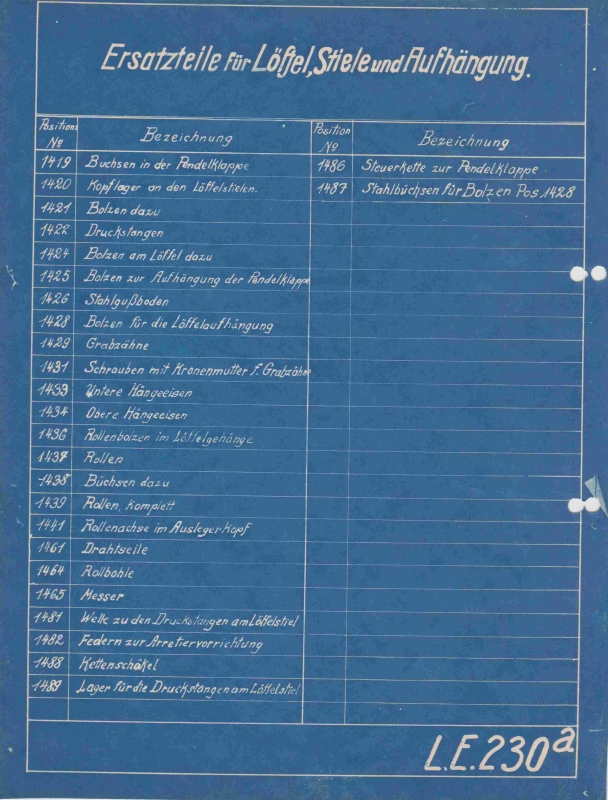 Ersatzteile für Löffel, Stiele und Aufhängung.
Positions Nº Bezeichnung
1419 Buchsen in der Pendelklappe
1420 Kopflager an den Löffelstielen.
1421 Bolzen dazu
1422 Druckstangen
1424 Bolzen am Löffel dazu
1425 Bolzen zur Aufhängung der Pendelklappe
1426 Stahlgußboden
1428 Bolzen für die Löffelaufhängung
1429 Grabzähne
1431 Schrauben mit Kronenmutter f. Grabzähne
1433 Untere Hängeeisen
1434 Obere Hängeeisen
1436 Rollenbolzen im Löffelgehänge
1437 Rollen
1438 Büchsen dazu
1439 Rollen, Komplett
1441 Rollenachse im Ausleger-Kopf
1461 Drahtseile
1464 Rollbohle
1465 Messer
1481 Welle zu den Druckstangen am Löffelstiel
1482 Federn zur Arretiervorrichtung
1488 Kettenschäkel
1489 Lager für die Druckstangen am Löffelstiel
Position Nº Bezeichnung
1486 Steuerkette zur Pendelklappe
1487 Stahlbüchsen für Bolzen Pos 1428
L.E.230a